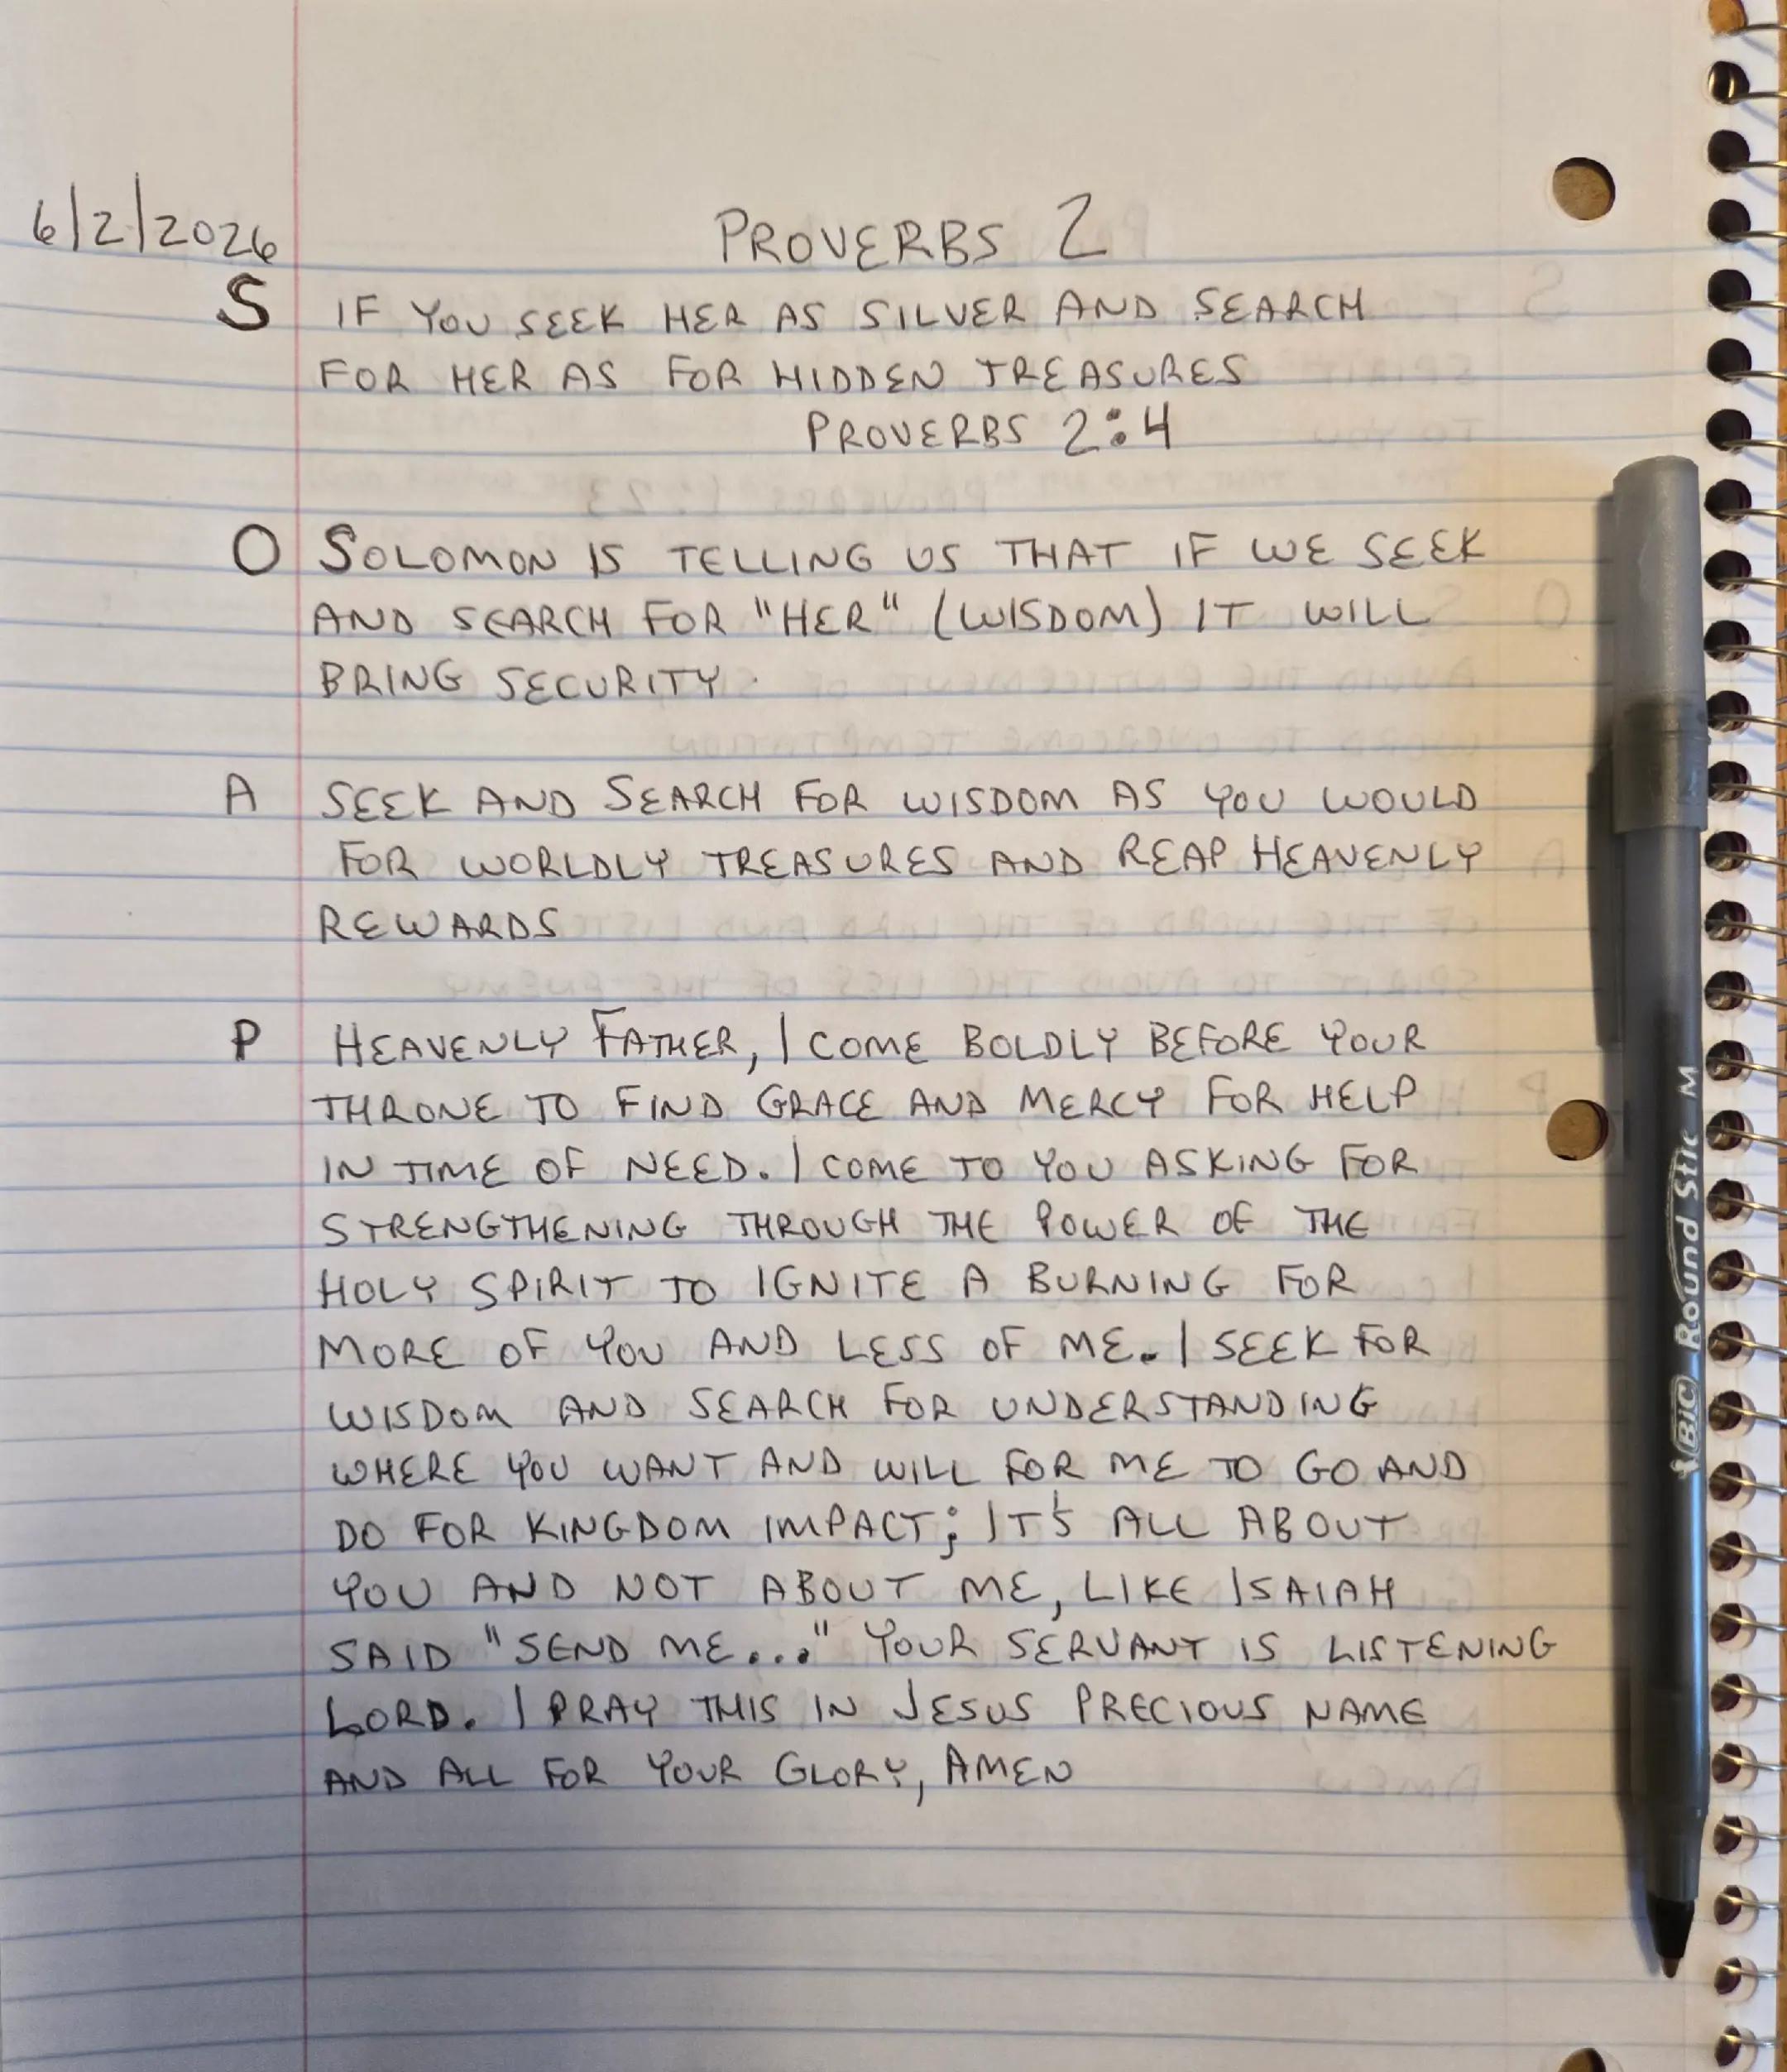 6/2/2026
PROVERBS 2
S IF YOU SEEK HER AS SILVER AND SEARCH
FOR HER AS FOR HIDDEN TREASURES
PROVERBS 2:4
O SOLOMON IS TELLING US THAT IF WE SEEK
AND SEARCH FOR "HER" (WISDOM) IT WILL
BRING SECURITY.
A SEEK AND SEARCH FOR WISDOM AS YOU WOULD
FOR WORLDLY TREASURES AND REAP HEAVENLY
REWARDS
P HEAVENLY FATHER, I COME BOLDLY BEFORE YOUR
THRONE TO FIND GRACE AND MERCY FOR HELP
IN TIME OF NEED. I COME TO YOU ASKING FOR
STRENGTHENING THROUGH THE POWER OF THE
HOLY SPIRIT TO IGNITE A BURNING FOR
MORE OF YOU AND LESS OF ME. I SEEK FOR
WISDOM AND SEARCH FOR UNDERSTANDING
WHERE YOU WANT AND WILL FOR ME TO GO AND
DO FOR KINGDOM IMPACT; IT'S ALL ABOUT
YOU AND NOT ABOUT ME, LIKE ISAIAH
SAID "SEND ME..." YOUR SERVANT IS LISTENING
LORD. I PRAY THIS IN JESUS PRECIOUS NAME
AND ALL FOR YOUR GLORY, AMEN
BIC Round Stic M